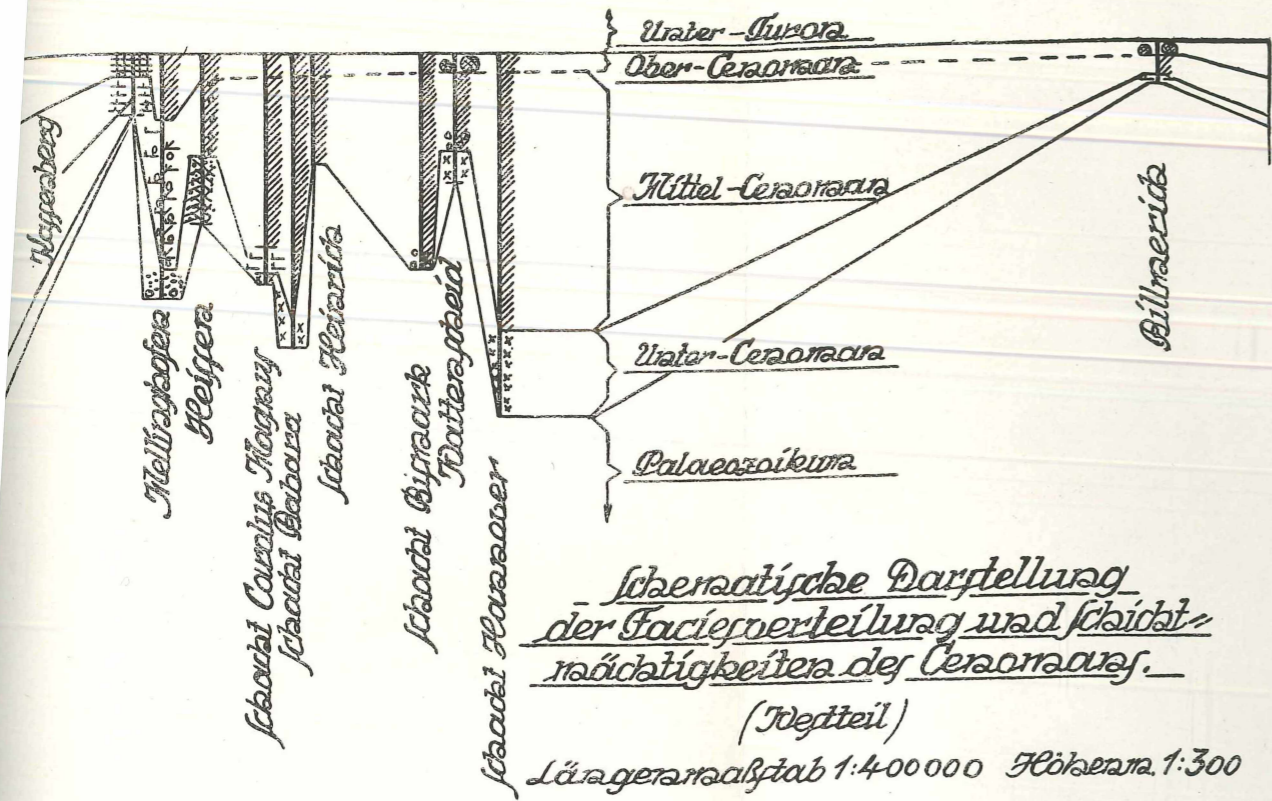 Unter-Turon
Ober-Cenoman
Mittel-Cenoman
Unter-Cenoman
Palaeozoikum
Kassenberg
Mellinghofen
Heissen
Schacht Carolus Magnus
Schacht Barbara
Schacht Heinrich
Schacht Bismark
Wattenscheid
Schacht Hannover
Billmerich
Schematische Darstellung
der Faciesverteilung und Schicht=
mächtigkeiten des Cenomans.
(Westteil)
Längenmaßstab 1:400000 Höhenm. 1:300